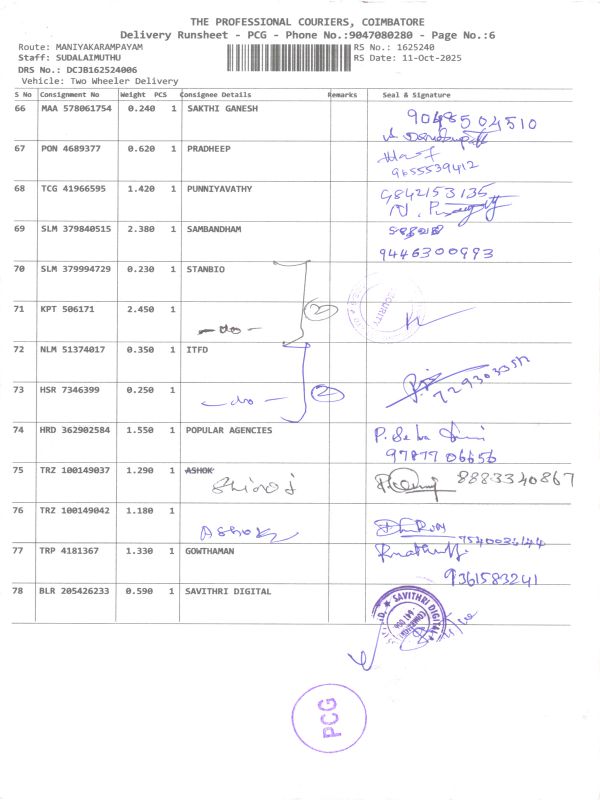 THE PROFESSIONAL COURIERS, COIMBATORE
Delivery Runsheet - PCG - Phone No.:9047080280 - Page No.:6
Route: MANIYAKARAMPAYAM RS No.: 1625240
Staff: SUDALAIMUTHU RS Date: 11-Oct-2025
DRS No.: DCJB162524006
Vehicle: Two Wheeler Delivery
S No Consignment No Weight PCS Consignee Details Remarks Seal & Signature
66 MAA 578061754 0.240 1 SAKTHI GANESH 9048504510
67 PON 4689377 0.620 1 PRADHEEP
9655539412
68 TCG 41966595 1.420 1 PUNNIYAVATHY 9842153135
69 SLM 379840515 2.380 1 SAMBANDHAM
9446300993
70 SLM 379994729 0.230 1 STANBIO
71 KPT 506171 2.450 1
-do- 2 SECURITY
72 NLM 51374017 0.350 1 ITFD
73 HSR 7346399 0.250 1
-do- 2
74 HRD 362902584 1.550 1 POPULAR AGENCIES P. Selva
9787706656
75 TRZ 100149037 1.290 1 ASHOK 8883340867
76 TRZ 100149042 1.180 1
ASHOK
77 TRP 4181367 1.330 1 GOWTHAMAN
9361583241
78 BLR 205426233 0.590 1 SAVITHRI DIGITAL
SAVITHRI DIGITAL
PCG